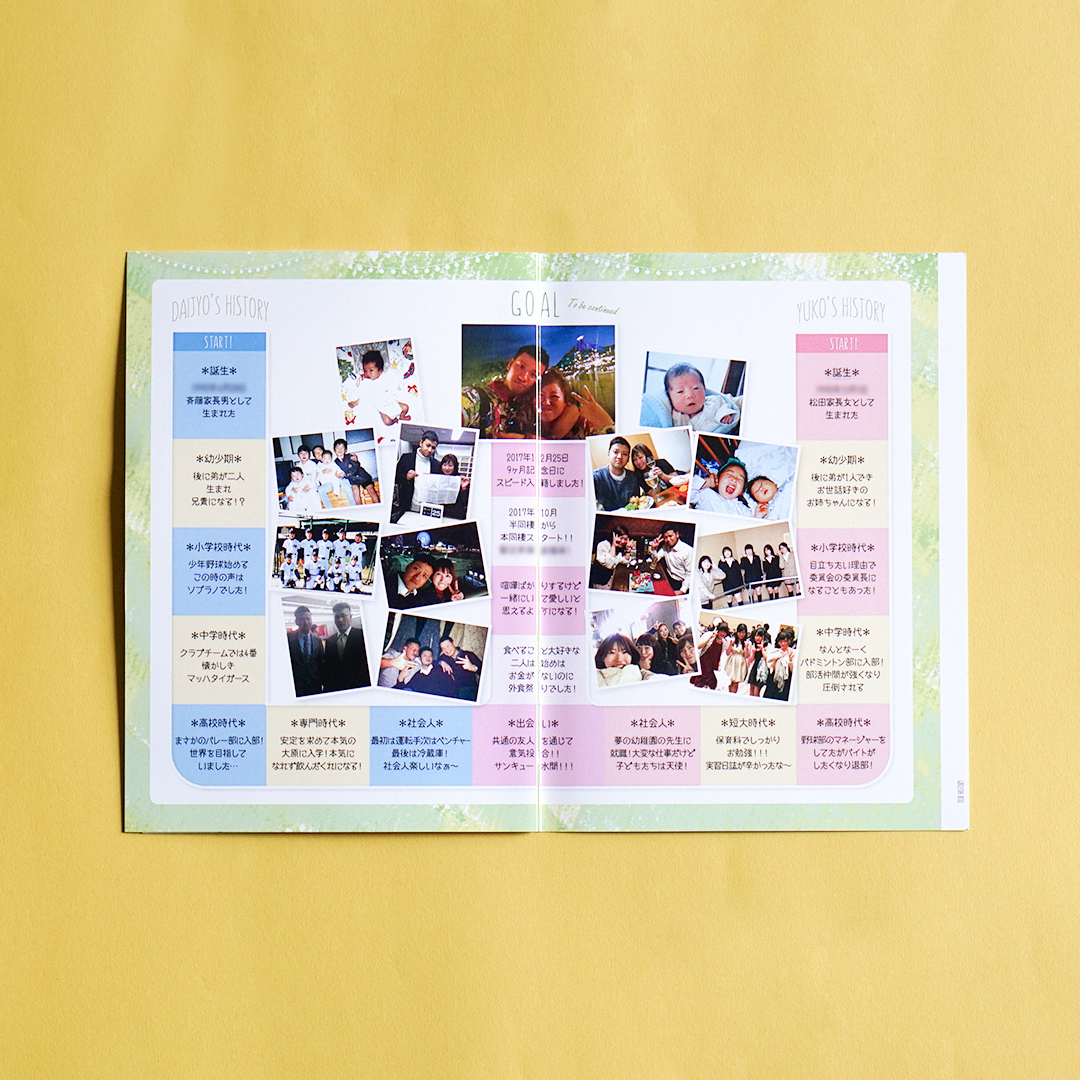 DAIJYO'S HISTORY
START!
＊誕生＊
斉藤家長男として
生まれた
＊幼少期＊
後に弟が二人
生まれ
兄貴になる！？
＊小学校時代＊
少年野球始める
この時の声は
ソプラノでした！
＊中学時代＊
クラブチームでは4番
懐かしき
マッハタイガース
＊高校時代＊
まさかのバレー部に入部！
世界を目指して
いました…
＊専門時代＊
安定を求めて本気の
大原に入学！本気に
なれず飲んだくれになる！
＊社会人＊
最初は運転手次はベンチャー
最後は冷蔵庫！
社会人楽しいなぁ～
YUKO'S HISTORY
START!
＊誕生＊
松田家長女として
生まれた
＊幼少期＊
後に弟が1人でき
お世話好きの
お姉ちゃんになる！
＊小学校時代＊
目立ちたい理由で
委員会の委員長に
なることもあった！
＊中学時代＊
なんとなーく
バドミントン部に入部！
部活仲間が強くなり
圧倒される
＊高校時代＊
野球部のマネージャーを
してたがバイトが
したくなり退部！
＊短大時代＊
保育科でしっかり
お勉強！！！
実習日誌が辛かったな～
＊社会人＊
夢の幼稚園の先生に
就職！大変な仕事だけど
子どもたちは天使！
＊出会い＊
共通の友人を通じて
意気投合！！
サンキュー水間！！！
食べること大好きな
二人は始めは
お金がないのに
外食祭りでした！
喧嘩ばかりするけど
一緒にいて愛しいと
思えるようになる！
2017年10月
半同棲から
本同棲スタート！！
2017年12月25日
9ヶ月記念日に
スピード入籍しました！
GOAL
To be continued
OUR HISTORY